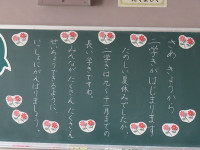 さあ きょうから
二学きがはじまります。
たのしい夏休みでしたか。
二学きは九〜十二月までの
長い学きですね。
みんながたくさんたくさん
せいちょうできるように
いっしょにがんばりましょう!